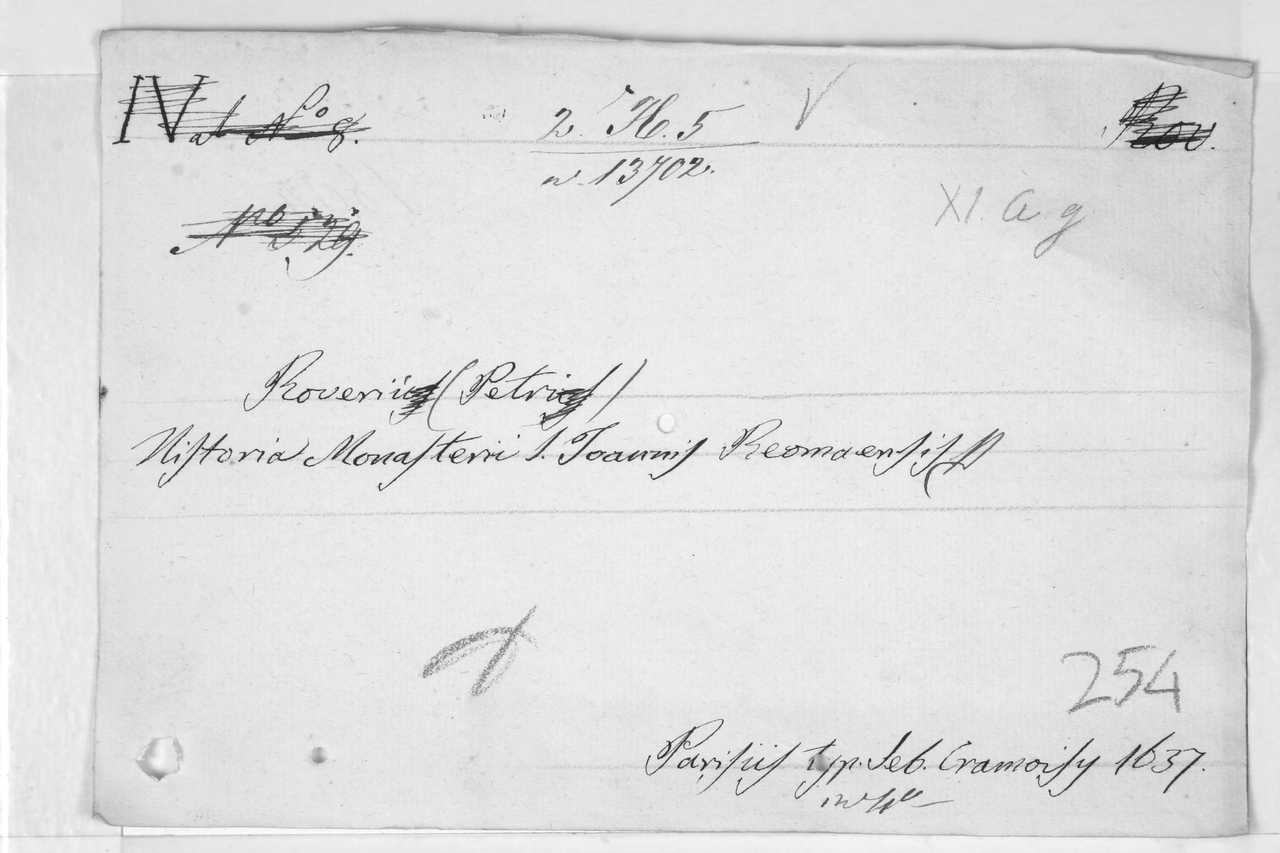 Nat N.º 8.
2. H. 5
Rov.
n. 13702.
XI. a g
Nro 529.
Roverii (Petri)
Historia Monasterii S. Joannis Reomaensis
254
Parisiis typ. Seb. Cramoisy 1637.
in 4º